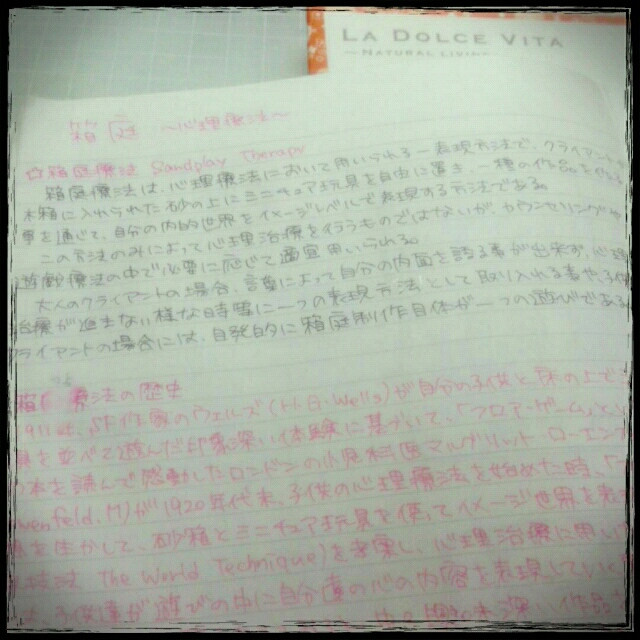 LA DOLCE VITA
NATURAL LIVING
箱庭 〜心理療法〜
☆箱庭療法 Sandplay Therapy
箱庭療法は、心理療法において用いられる一表現方法で、クライアントが
木箱に入れられた砂の上にミニチュア玩具を自由に置き、一種の作品を作る
事を通じて、自分の内的世界をイメージレベルで表現する方法である。
この方法のみによって心理治療を行うものではないが、カウンセリングや
遊戯療法の中で必要に応じて適宜用いられる。
大人のクライアントの場合、言葉によって自分の内面を語る事が出来ず、心理
治療が進まない様な時等に一つの表現方法として取り入れる事や、子供
クライアントの場合には、自発的に箱庭制作自体が一つの遊びである
箱 療法の歴史
1911年、SF作家のウェルズ(H.G.Wells)が自分の子供と床の上で
具を並べて遊んだ印象深い体験に基づいて、「フロアーゲーム」とい
の本を読んで感動したロンドンの小児科医マルグリット・ローエン
wenfeld.M)が1920年代末、子供の心理療法を始めた時、「
を生かして、砂箱とミニチュア玩具を使ってイメージ世界を表
技法 The World Technique)を考案し、心理治療に用い
子供達が遊びの中に自分達の心の内容を表現していく
深い作品